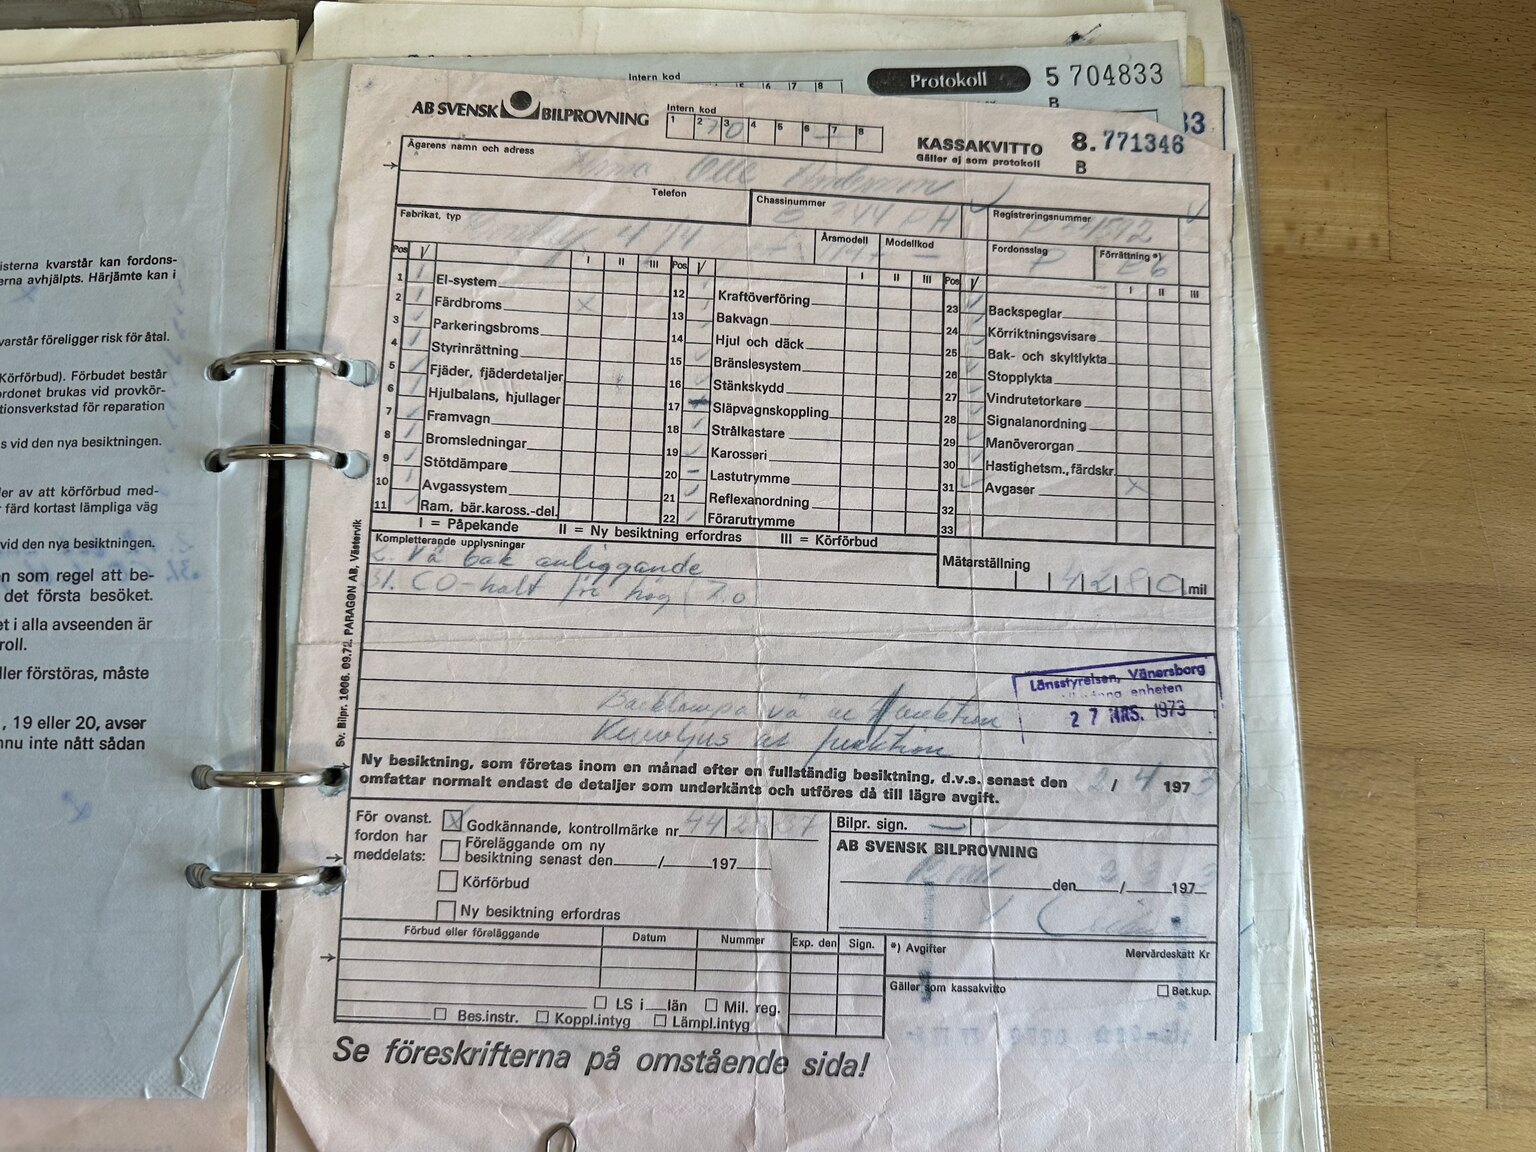 isterna kvarstår kan fordons-
erna avhjälpts. Härjämte kan i
varstår föreligger risk för åtal.
Körförbud). Förbudet består
ordonet brukas vid provkör-
tionsverkstad för reparation
s vid den nya besiktningen.
ler av att körförbud med-
färd kortast lämpliga väg
vid den nya besiktningen.
n som regel att be-
det första besöket.
et i alla avseenden är
roll.
ller förstöras, måste
, 19 eller 20, avser
nnu inte nått sådan
Intern kod
6 7 8
Protokoll 5 704833
B
33
AB SVENSK BILPROVNING
Intern kod
1 2 3 4 5 6 7 8
KASSAKVITTO 8.771346
Gäller ej som protokoll B
Ägarens namn och adress
Olle
Telefon
Chassinummer
Registreringsnummer
Fabrikat, typ
4/4
Årsmodell
Modellkod
Fordonsslag
P
Förrättning *)
Pos √ I II III Pos √ I II III Pos √ I II III
1 El-system
2 Färdbroms x
3 Parkeringsbroms
4 Styrinrättning
5 Fjäder, fjäderdetaljer
6 Hjulbalans, hjullager
7 Framvagn
8 Bromsledningar
9 Stötdämpare
10 Avgassystem
11 Ram. bär.kaross.-del.
12 Kraftöverföring
13 Bakvagn
14 Hjul och däck
15 Bränslesystem
16 Stänkskydd
17 Släpvagnskoppling
18 Strålkastare
19 Karosseri
20 Lastutrymme
21 Reflexanordning
22 Förarutrymme
23 Backspeglar
24 Körriktningsvisare
25 Bak- och skyltlykta
26 Stopplykta
27 Vindrutetorkare
28 Signalanordning
29 Manöverorgan
30 Hastighetsm., färdskr.
31 Avgaser x
32
33
I = Påpekande II = Ny besiktning erfordras III = Körförbud
Kompletterande upplysningar
2. Vä bak anliggande
31. CO-halt för hög 7.0
Mätarställning
mil
Backlampa vä ur funktion
ur funktion
Länsstyrelsen, Vänersborg
enheten
27 MRS. 1973
Sv. Bilpr. 1006. 09.72. PARAGON AB, Västervik
Ny besiktning, som företas inom en månad efter en fullständig besiktning, d.v.s. senast den 2 / 4 1973
omfattar normalt endast de detaljer som underkänts och utföres då till lägre avgift.
För ovanst. fordon har meddelats:
x Godkännande, kontrollmärke nr
Föreläggande om ny
besiktning senast den / 197
Körförbud
Ny besiktning erfordras
Bilpr. sign.
AB SVENSK BILPROVNING
den 2 / 3 1973
Förbud eller föreläggande Datum Nummer Exp. den Sign.
LS i län Mil. reg.
Bes.instr. Koppl.intyg Lämpl.intyg
*) Avgifter Mervärdeskatt Kr
Gäller som kassakvitto Bet.kup.
Se föreskrifterna på omstående sida!